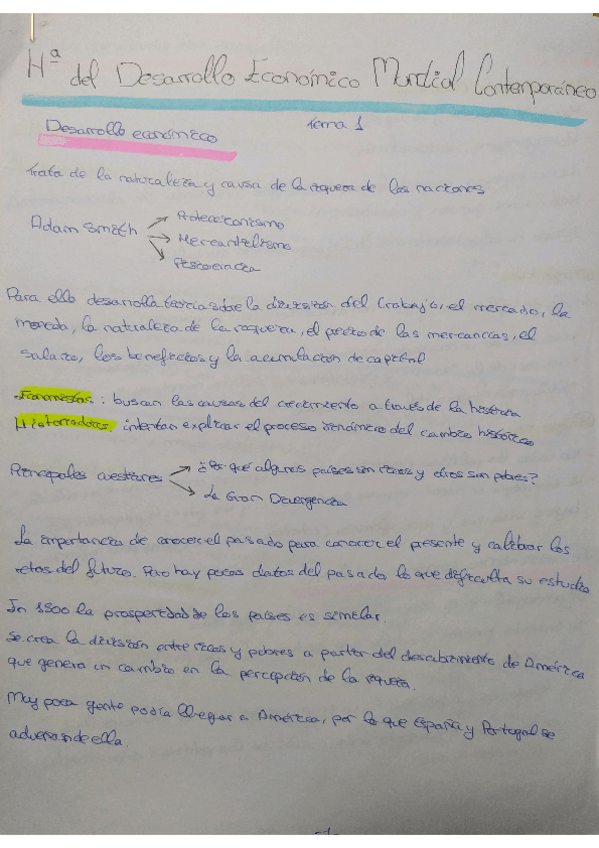 Hª del Desarrollo Económico Mundial Contemporáneo
Tema 1
Desarrollo económico
Trata de la naturaleza y causa de la riqueza de las naciones
Adam Smith → Proteccionismo
→ Mercantilismo
→ Fisiocracia
Para ello desarrolla teorías sobre la división del trabajo, el mercado, la
moneda, la naturaleza de la riqueza, el precio de las mercancías, el
salario, los beneficios y la acumulación de capital
Economistas: buscan las causas del crecimiento a través de la historia
Historiadores: intentan explicar el proceso dinámico del cambio histórico
Principales cuestiones → ¿Por qué algunos países son ricos y otros son pobres?
→ La Gran Divergencia
La importancia de conocer el pasado para conocer el presente y calibrar los
retos del futuro. Pero hay pocos datos del pasado lo que dificulta su estudio
In 1500 la prosperidad de los países es similar.
Se crea la división entre ricos y pobres a partir del descubrimiento de América
que genero un cambio en la percepción de la riqueza.
Muy poca gente podía llegar a América, por lo que España y Portugal se
de ella.
-1-